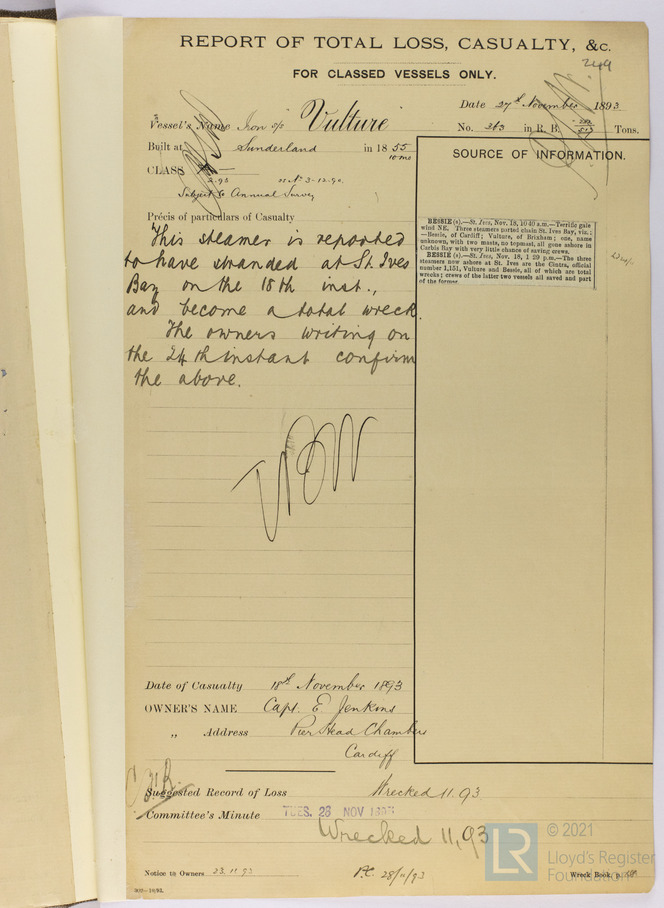 REPORT OF TOTAL LOSS, CASUALTY, &c.
249
FOR CLASSED VESSELS ONLY.
Date 27th November 1893
Vessel's Name Iron s/s Vulture
No. 263 in R. B. Tons.
Built at Sunderland in 1855
10 mo
CLASS
2.93
Subject to Annual Survey
SOURCE OF INFORMATION.
Précis of particulars of Casualty
This steamer is reported
to have stranded at St. Ives
Bay on the 18th inst.,
and become a total wreck.
The owners writing on
the 24th instant confirm
the above.
BESSIE (s).—St. Ives, Nov. 18, 10 40 a.m.—Terrific gale
wind NE. Three steamers parted chain St. Ives Bay, viz.:
—Bessie, of Cardiff; Vulture, of Brixham; one, name
unknown, with two masts, no topmast, all gone ashore in
Carbis Bay with very little chance of saving crews.
BESSIE (s).—St. Ives, Nov. 18, 1 29 p.m.—The three
steamers now ashore at St. Ives are the Cintra, official
number 1,151, Vulture and Bessie, all of which are total
wrecks; crews of the latter two vessels all saved and part
of the former.
Date of Casualty 18th November 1893
OWNER'S NAME Capt. E. Jenkins
„ Address Pier Head Chambers
Cardiff
Suggested Record of Loss Wrecked 11.93
Committee's Minute TUES. 28 NOV 1893
Wrecked 11,93
Notice to Owners 23.11.93
28/11/93
Wreck Book, p.
LR
© 2021
Lloyd's Register
Foundation